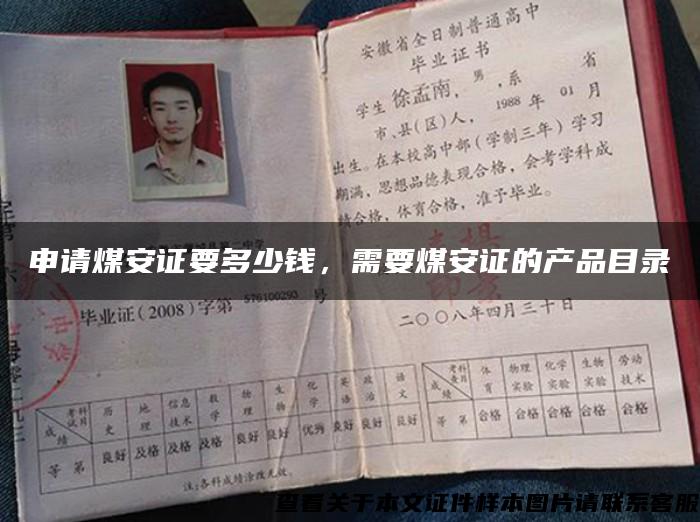 安徽省全日制普通高中
毕业证书
学生徐孟南，男，系 省
市、县(区)人，1988年01月
出生。在本校高中部（学制三年）学习
期满，思想品德表现合格，会考学科成
绩合格，体育合格，准予毕业。
申请煤安证要多少钱，需要煤安证的产品目录
毕业证(2008)字第 576100293 号
二〇〇八年四月三十日
考试科目 历史 地理 信息技术 数学 物理 生物 化学 英语 政治 语文
成绩
等第 良好 及格 及格 及格 良好 良好 优秀 良好 良好 良好
注:各科成绩涂改无效。
考科查目 体育 物理实验 化学实验 生物实验 劳动技术
成绩
等第 合格 合格 合格 合格 合格
查看关于本文证件样本图片请联系客服